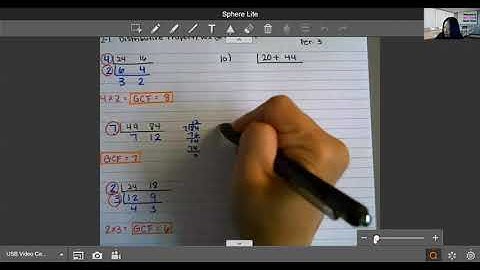 Sphere Lite
2-1 Distributive Property
Per. 3
4 24 16
2 6 4
3 2
4 × 2 = GCF = 8
10) 20 + 44
7 49 84
7 12
GCF = 7
2 24 18
3 12 9
4 3
2 × 3 = GCF = 6
USB Video Ca...